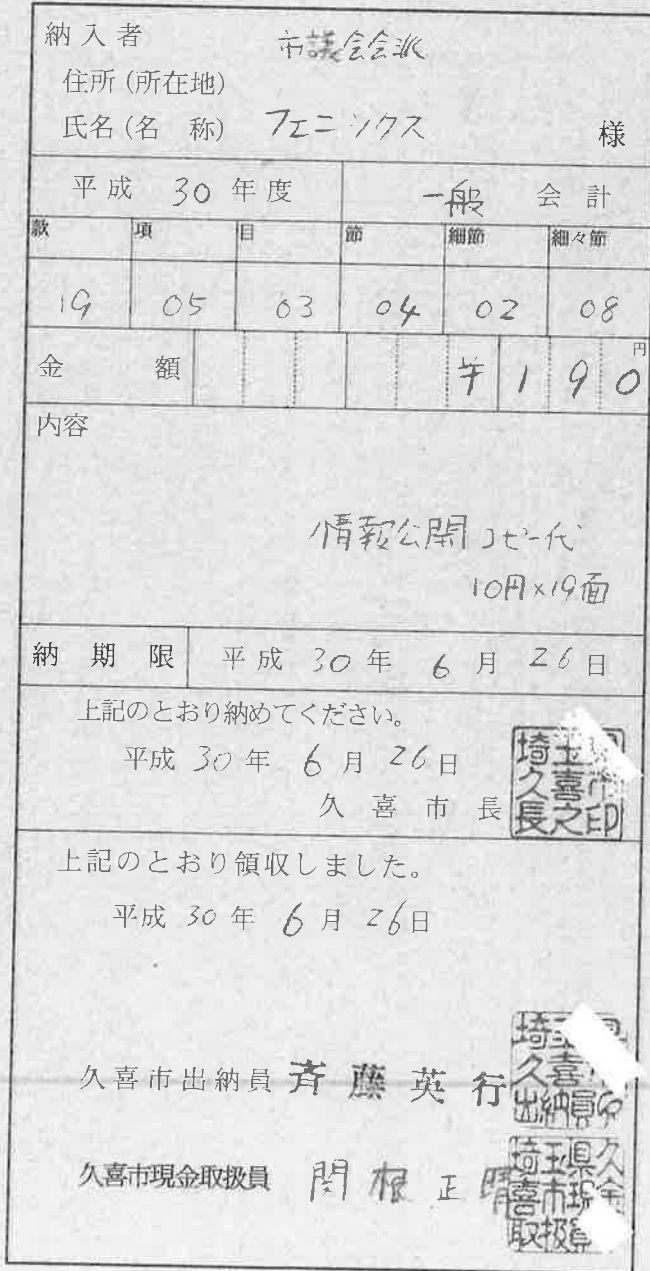 納入者 市議会会派
住所(所在地)
氏名(名 称) フェニックス 様
平成 30 年度 一般 会計
款 項 目 節 細節 細々節
19 05 03 04 02 08
金 額 ¥ 1 9 0 円
内容
情報公開コピー代
10円×19面
納 期 限 平成 30 年 6 月 26 日
上記のとおり納めてください。
平成 30 年 6 月 26 日
久 喜 市 長
埼玉
久喜市
長之印
上記のとおり領収しました。
平成 30 年 6 月 26 日
久喜市出納員 斉 藤 英 行
埼
久喜
出納員
久喜市現金取扱員 関 根 正 晴
埼玉県久
喜市現金
取扱員